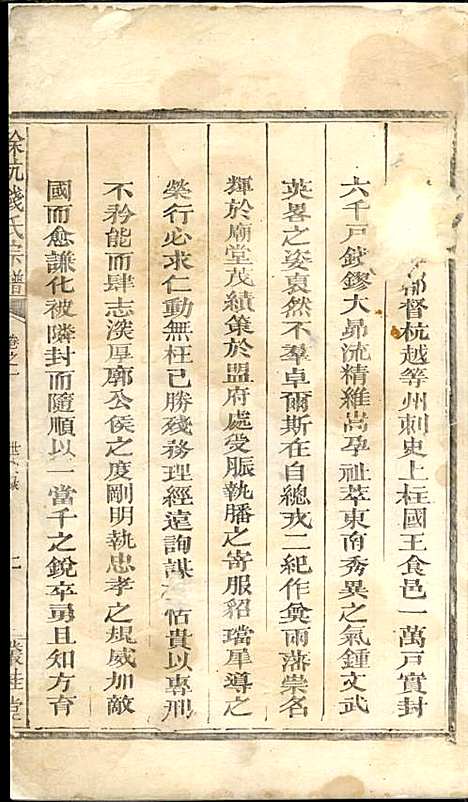 都督杭越等州刺史上柱國王食邑一萬戶實封
六千戶錢鏐大昴流精維嵩孕祉萃東南秀異之氣鍾文武
英畧之姿裒然不羣卓爾斯在自總戎二紀作奠兩藩崇名
輝於廟堂茂績策於盟府處受脤執膰之寄服貂璫犀導之
榮行必求仁動無枉己勝殘務理經遠詢謀 怙貴以專刑
不矜能而肆志淡厚廓公侯之度剛明執忠孝之規威加敵
國而愈謙化被隣封而隨順以一當千之銳卒勇且知方育
餘杭錢氏宗譜 卷之二 二 叢桂堂